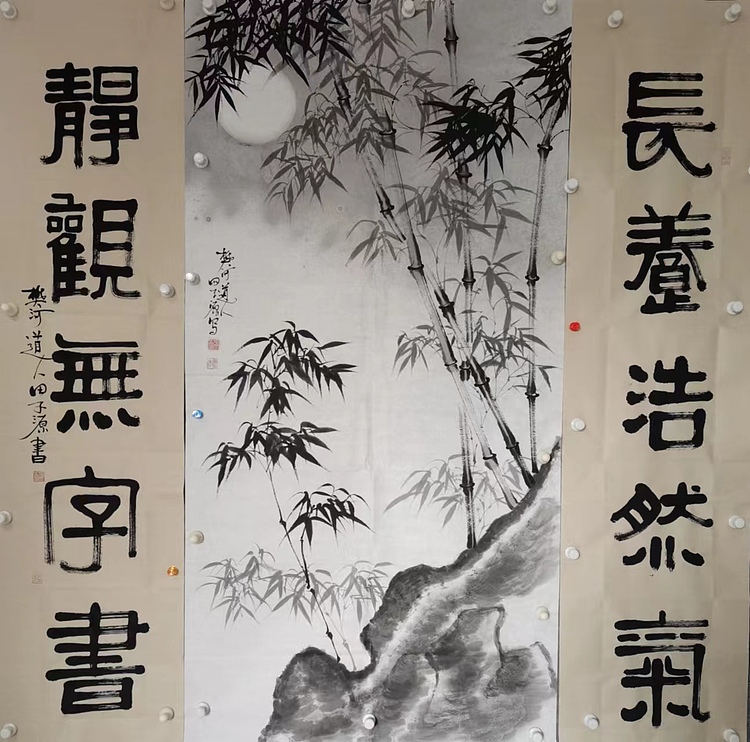 長養浩然氣
樊河道人
田子源写
靜觀無字書
樊河道人田子源書